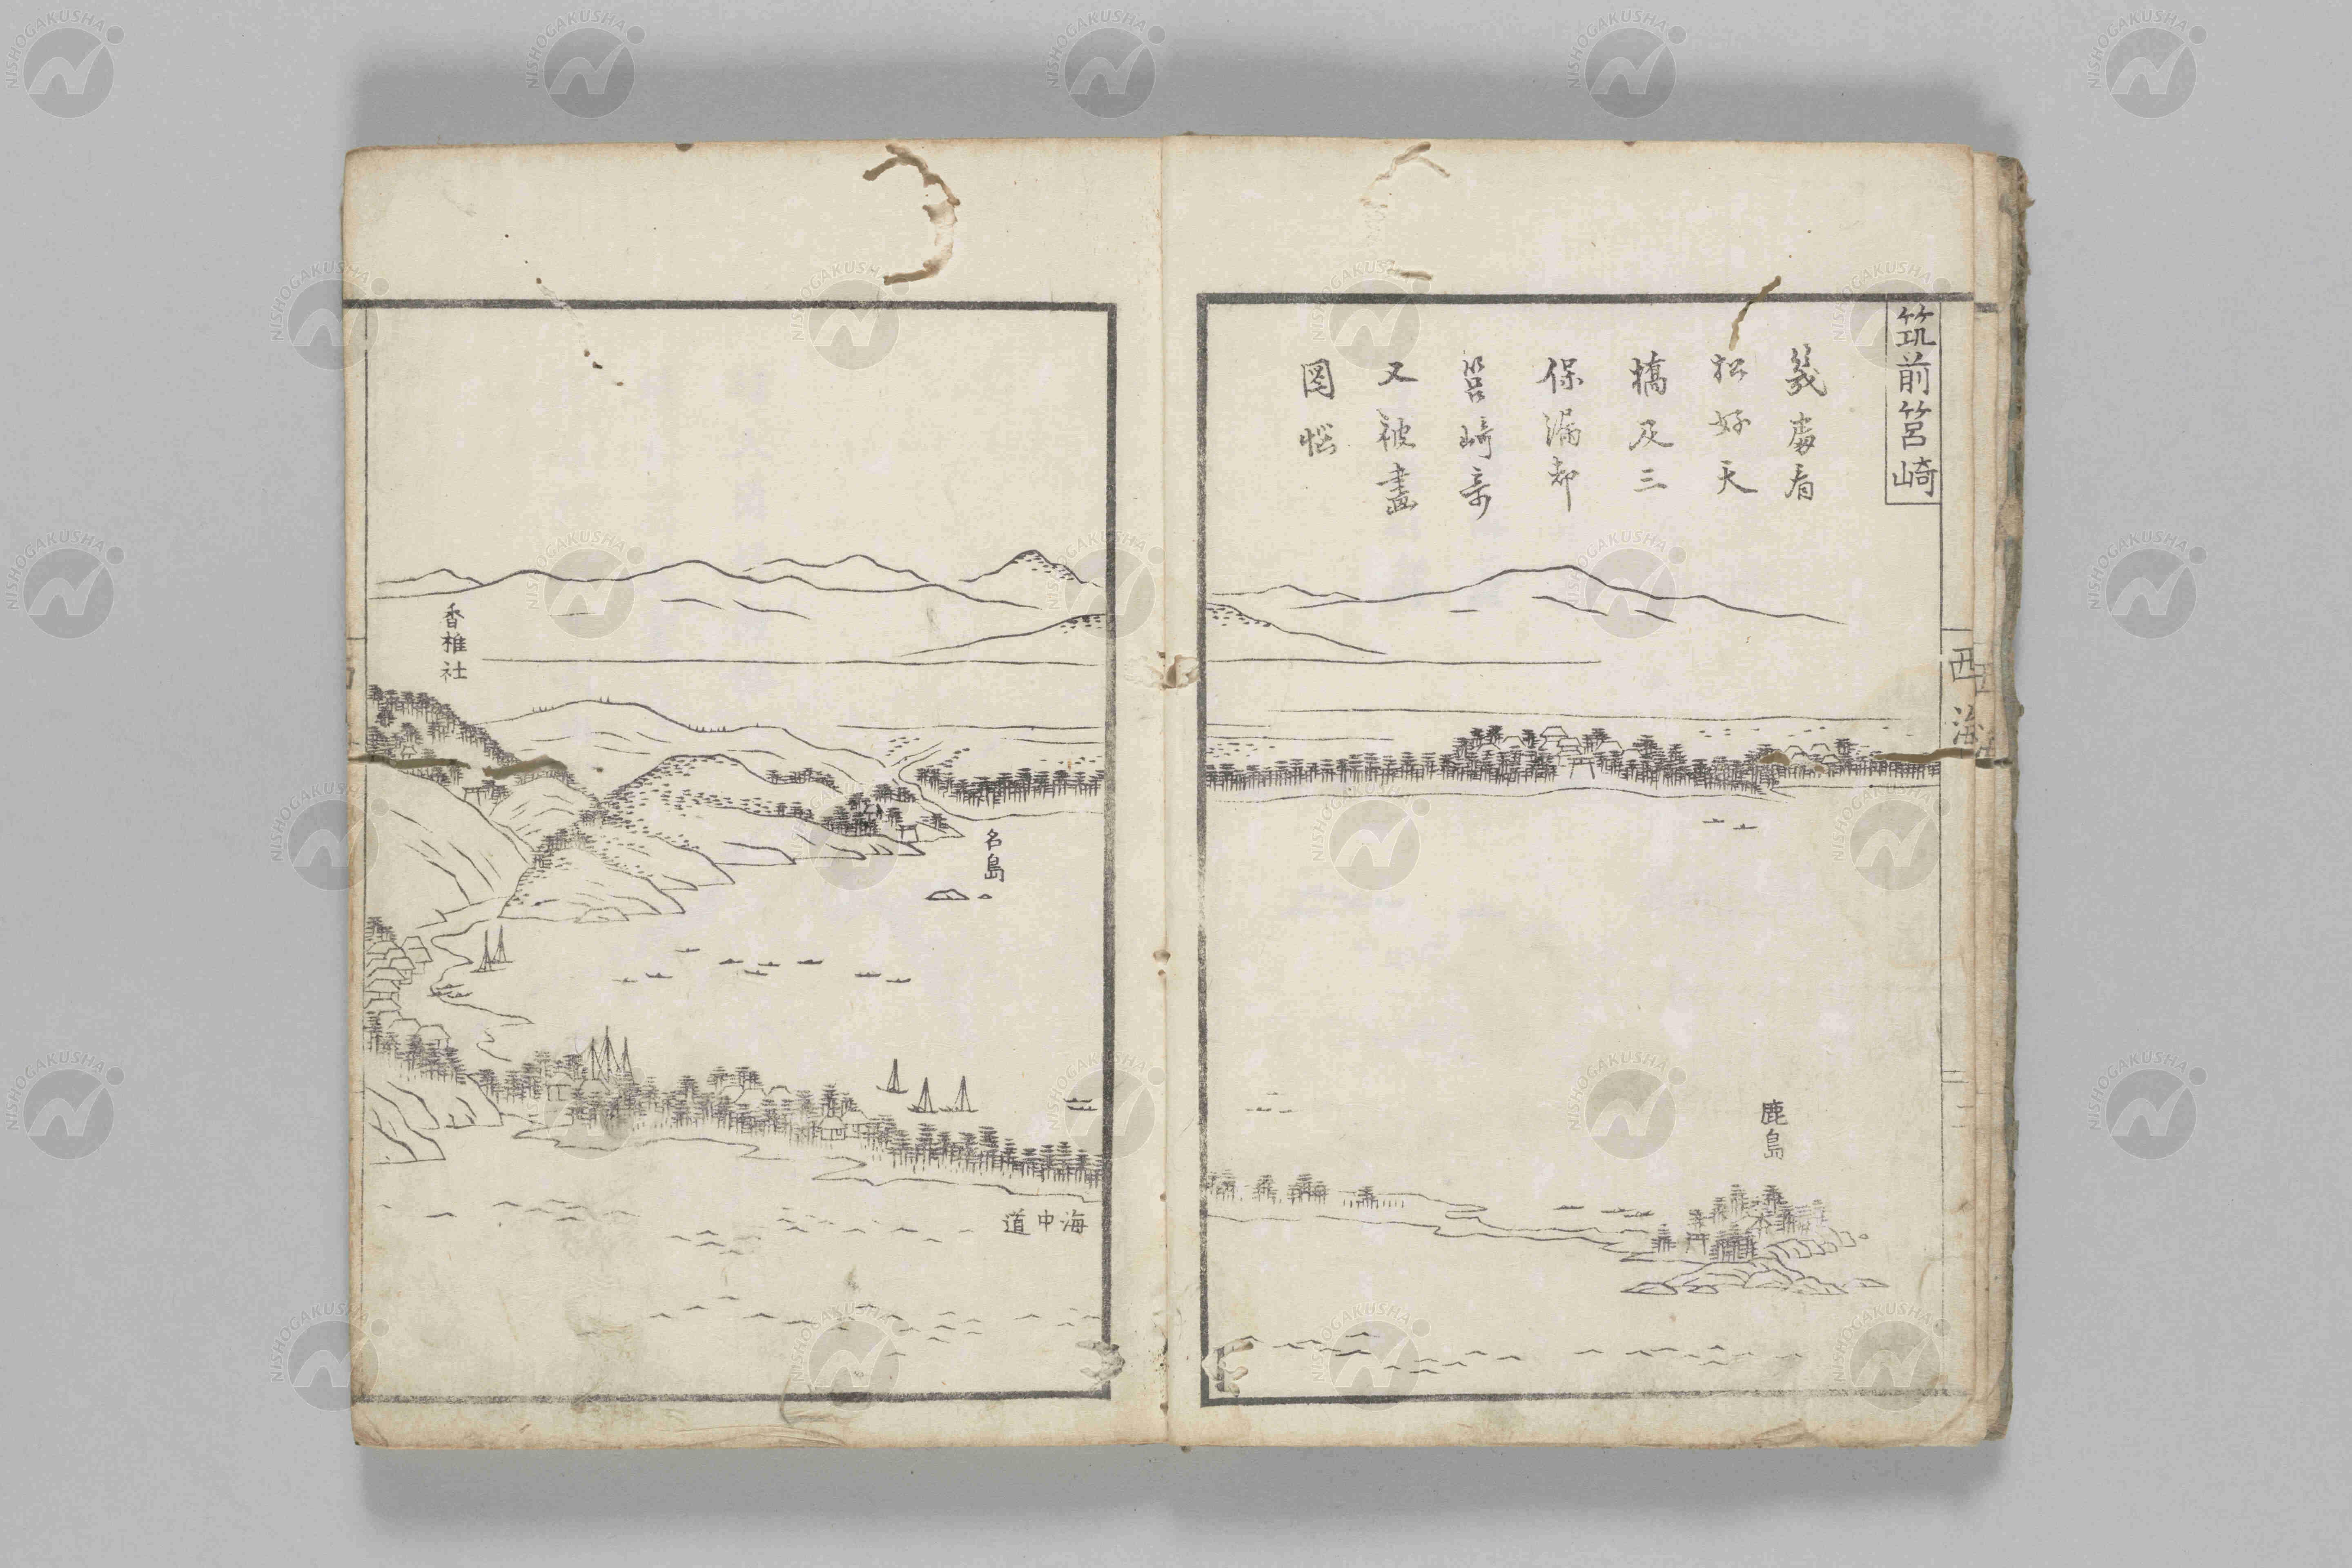 筑前筥崎
幾處看
松好天
橋及三
保漏却
筥崎奇
又被畫
圖惱
西海
鹿島
香椎社
名島
海中道
NISHOGAKUSHA